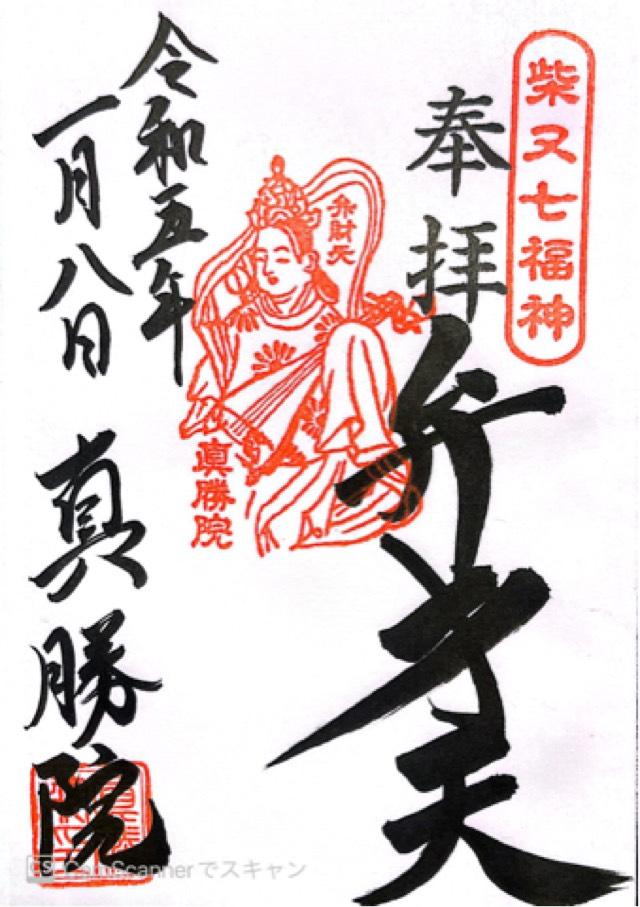 柴又七福神
奉拝
弁才天
弁財天
眞勝院
令和五年
一月八日
真勝院
CS CamScannerでスキャン